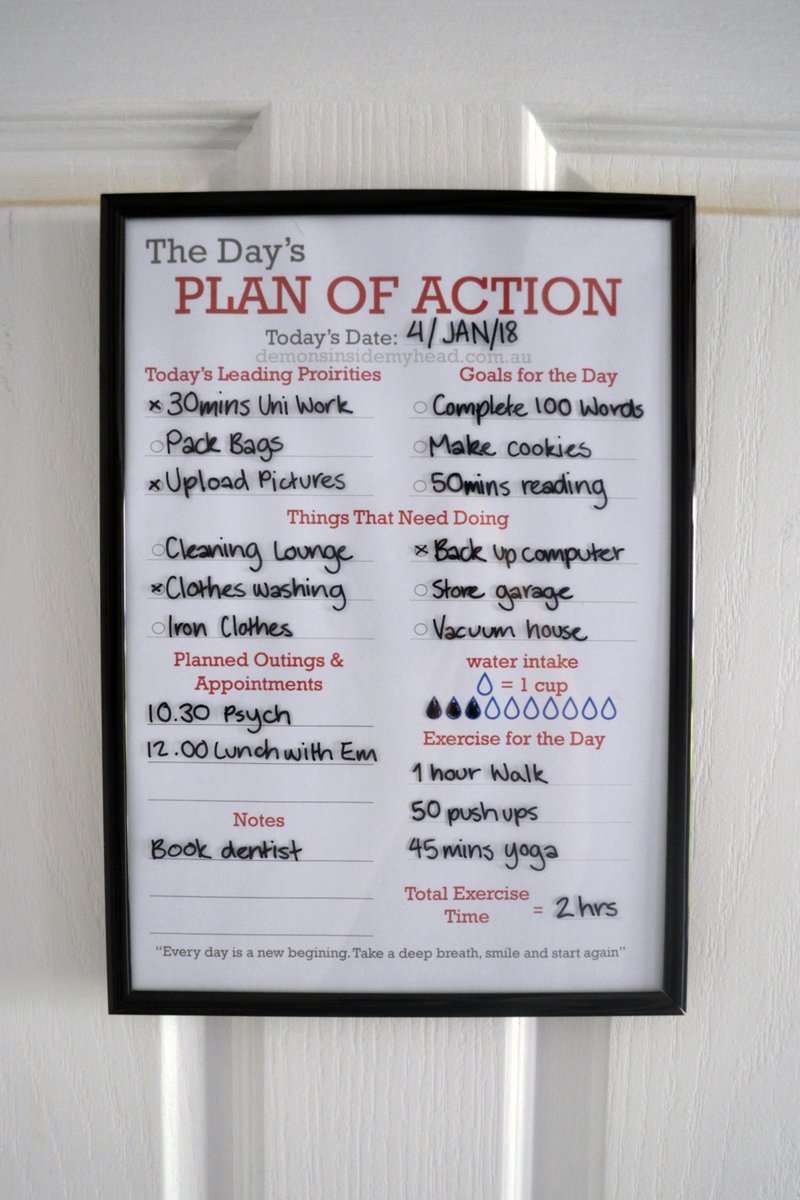 The Day's
PLAN OF ACTION
Today's Date: 4/JAN/18
demonsinsidemyhead.com.au
Today's Leading Proirities
30mins Uni Work
Pack Bags
Upload Pictures
Goals for the Day
Complete 100 Words
Make cookies
50mins reading
Things That Need Doing
Cleaning Lounge
Clothes washing
Iron Clothes
Back up computer
Store garage
Vacuum house
Planned Outings &
Appointments
10.30 Psych
12.00 Lunch with Em
Notes
Book dentist
water intake
= 1 cup
Exercise for the Day
1 hour Walk
50 push ups
45 mins yoga
Total Exercise
Time = 2 hrs
"Every day is a new begining. Take a deep breath, smile and start again"